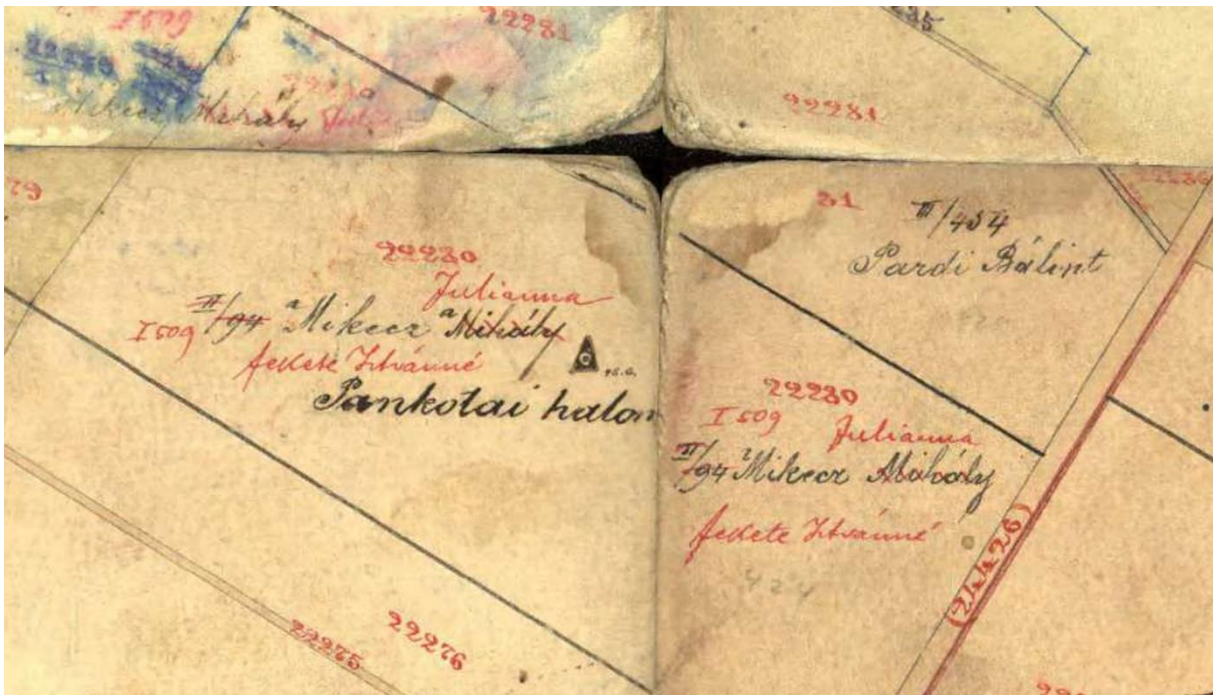 22281
Mikecz Mihály
22281
79
22280
Julianna
II/94 Mikecz Mihály
I 509
fekete Istvánné
Pankotai halom
81
III/454
Pardi Bálint
22280
I 509 Julianna
II/94 Mikecz Mihály
fekete Istvánné
424
(24426)
22275
22276